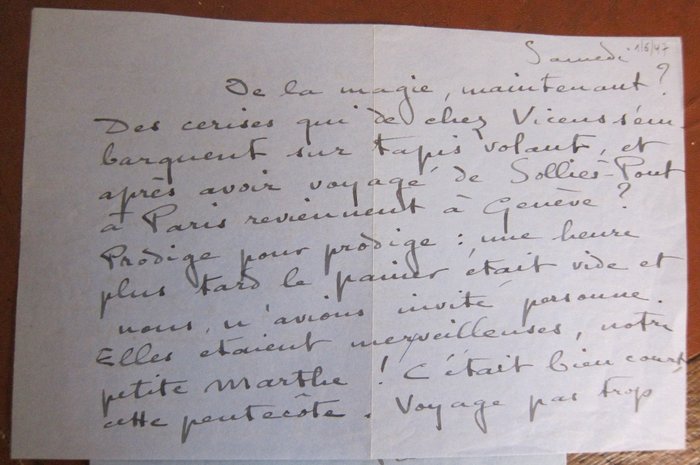 Samedi 1/6/47
De la magie, maintenant?
Des cerises qui de chez Vicens s'em
barquent sur tapis volant, et
après avoir voyagé de Solliès-Pont
à Paris reviennent à Genève?
Prodige pour prodige : une heure
plus tard le panier était vide et
nous n'avions invité personne.
Elles étaient merveilleuses, notre
petite Marthe! C'était bien court
cette pentecôte. Voyage pas trop